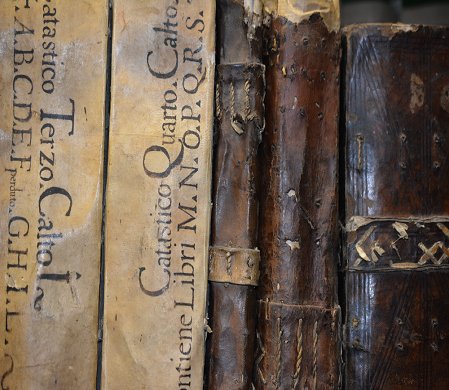 Catastico Terzo. Calto I.
A.B.C.D.E.F. perduto. G.H.I.L.
Catastico Quarto. Calto.
ntiene Libri M.N.O.P.Q.R.S.